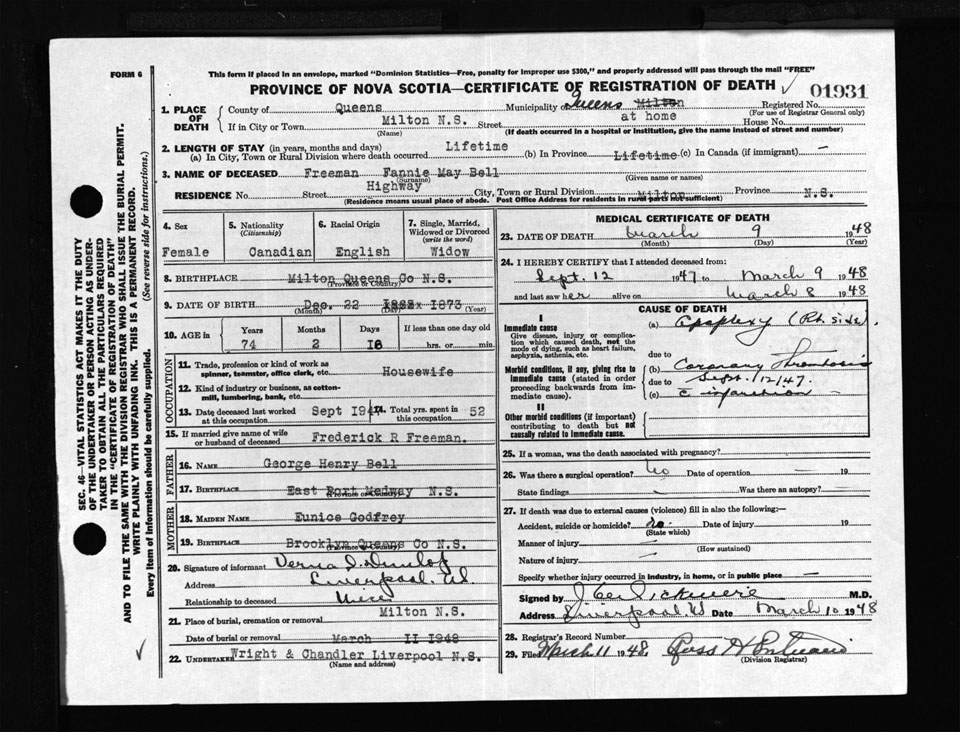 FORM 6
This form if placed in an envelope, marked "Dominion Statistics—Free, penalty for improper use $300," and properly addressed will pass through the mail "FREE"
PROVINCE OF NOVA SCOTIA—CERTIFICATE OF REGISTRATION OF DEATH
01931
1. PLACE OF DEATH
County of Queens Municipality of Queens Milton Registered No.
(For use of Registrar General only)
If in City or Town Milton N.S. Street at home House No.
(Name) (If death occurred in a hospital or institution, give the name instead of street and number)
2. LENGTH OF STAY (in years, months and days)
(a) In City, Town or Rural Division where death occurred Lifetime (b) In Province Lifetime (c) In Canada (if immigrant) —
3. NAME OF DECEASED Freeman Fannie May Bell
(Surname) (Given name or names)
RESIDENCE No. Street Highway City, Town or Rural Division Milton Province N.S.
(Residence means usual place of abode. Post Office Address for residents in rural parts not sufficient)
4. Sex Female
5. Nationality (Citizenship) Canadian
6. Racial Origin English
7. Single, Married, Widowed or Divorced (write the word) Widow
8. BIRTHPLACE Milton Queens Co N.S.
(Province or Country)
9. DATE OF BIRTH Dec. 22 1873
(Month) (Day) (Year)
10. AGE in Years Months Days If less than one day old
74 2 16 hrs. or min.
OCCUPATION
11. Trade, profession or kind of work as spinner, teamster, office clerk, etc. Housewife
12. Kind of industry or business, as cotton-mill, lumbering, bank, etc.
13. Date deceased last worked at this occupation Sept 1947
14. Total yrs. spent in this occupation 52
15. If married give name of wife or husband of deceased Frederick R Freeman.
FATHER
16. NAME George Henry Bell
17. BIRTHPLACE East Port Medway N.S.
(Province or Country)
MOTHER
18. MAIDEN NAME Eunice Godfrey
19. BIRTHPLACE Brooklyn Queens Co N.S.
(Province or Country)
20. Signature of informant Verna D. Dunlop
Address Liverpool. N.S.
Relationship to deceased Niece
21. Place of burial, cremation or removal Milton N.S.
Date of burial or removal March II 1948
22. UNDERTAKER Wright & Chandler Liverpool N.S.
(Name and address)
MEDICAL CERTIFICATE OF DEATH
23. DATE OF DEATH March 9 1948
(Month) (Day) (Year)
24. I HEREBY CERTIFY that I attended deceased from:
Sept. 12 1947 to March 9 1948
and last saw her alive on March 8 1948
CAUSE OF DEATH
I
Immediate cause
Give disease, injury or complication which caused death, not the mode of dying, such as heart failure, asphyxia, asthenia, etc.
Morbid conditions, if any, giving rise to immediate cause (stated in order proceeding backwards from immediate cause).
II
Other morbid conditions (if important) contributing to death but not causally related to immediate cause.
(a) Apoplexy (Rt. side).
due to
(b) Coronary Thrombosis
due to Sept. 12/47.
(c) c̄ infarction —
25. If a woman, was the death associated with pregnancy?
26. Was there a surgical operation? No Date of operation — 19
State findings Was there an autopsy? —
27. If death was due to external causes (violence) fill in also the following:—
Accident, suicide or homicide? no. Date of injury 19
(State which)
Manner of injury —
(How sustained)
Nature of injury —
Specify whether injury occurred in industry, in home, or in public place —
Signed by M.D.
Address Liverpool NS Date March 10 1948
28. Registrar's Record Number
29. Filed March 11 1948. Ross H
(Division Registrar)
SEC. 46—VITAL STATISTICS ACT MAKES IT THE DUTY
OF THE UNDERTAKER OR PERSON ACTING AS UNDER-
TAKER TO OBTAIN ALL THE PARTICULARS REQUIRED
IN THE "CERTIFICATE OF REGISTRATION OF DEATH"
AND TO FILE THE SAME WITH THE DIVISION REGISTRAR WHO SHALL ISSUE THE BURIAL PERMIT.
WRITE PLAINLY WITH UNFADING INK. THIS IS A PERMANENT RECORD.
Every item of information should be carefully supplied. (See reverse side for instructions.)